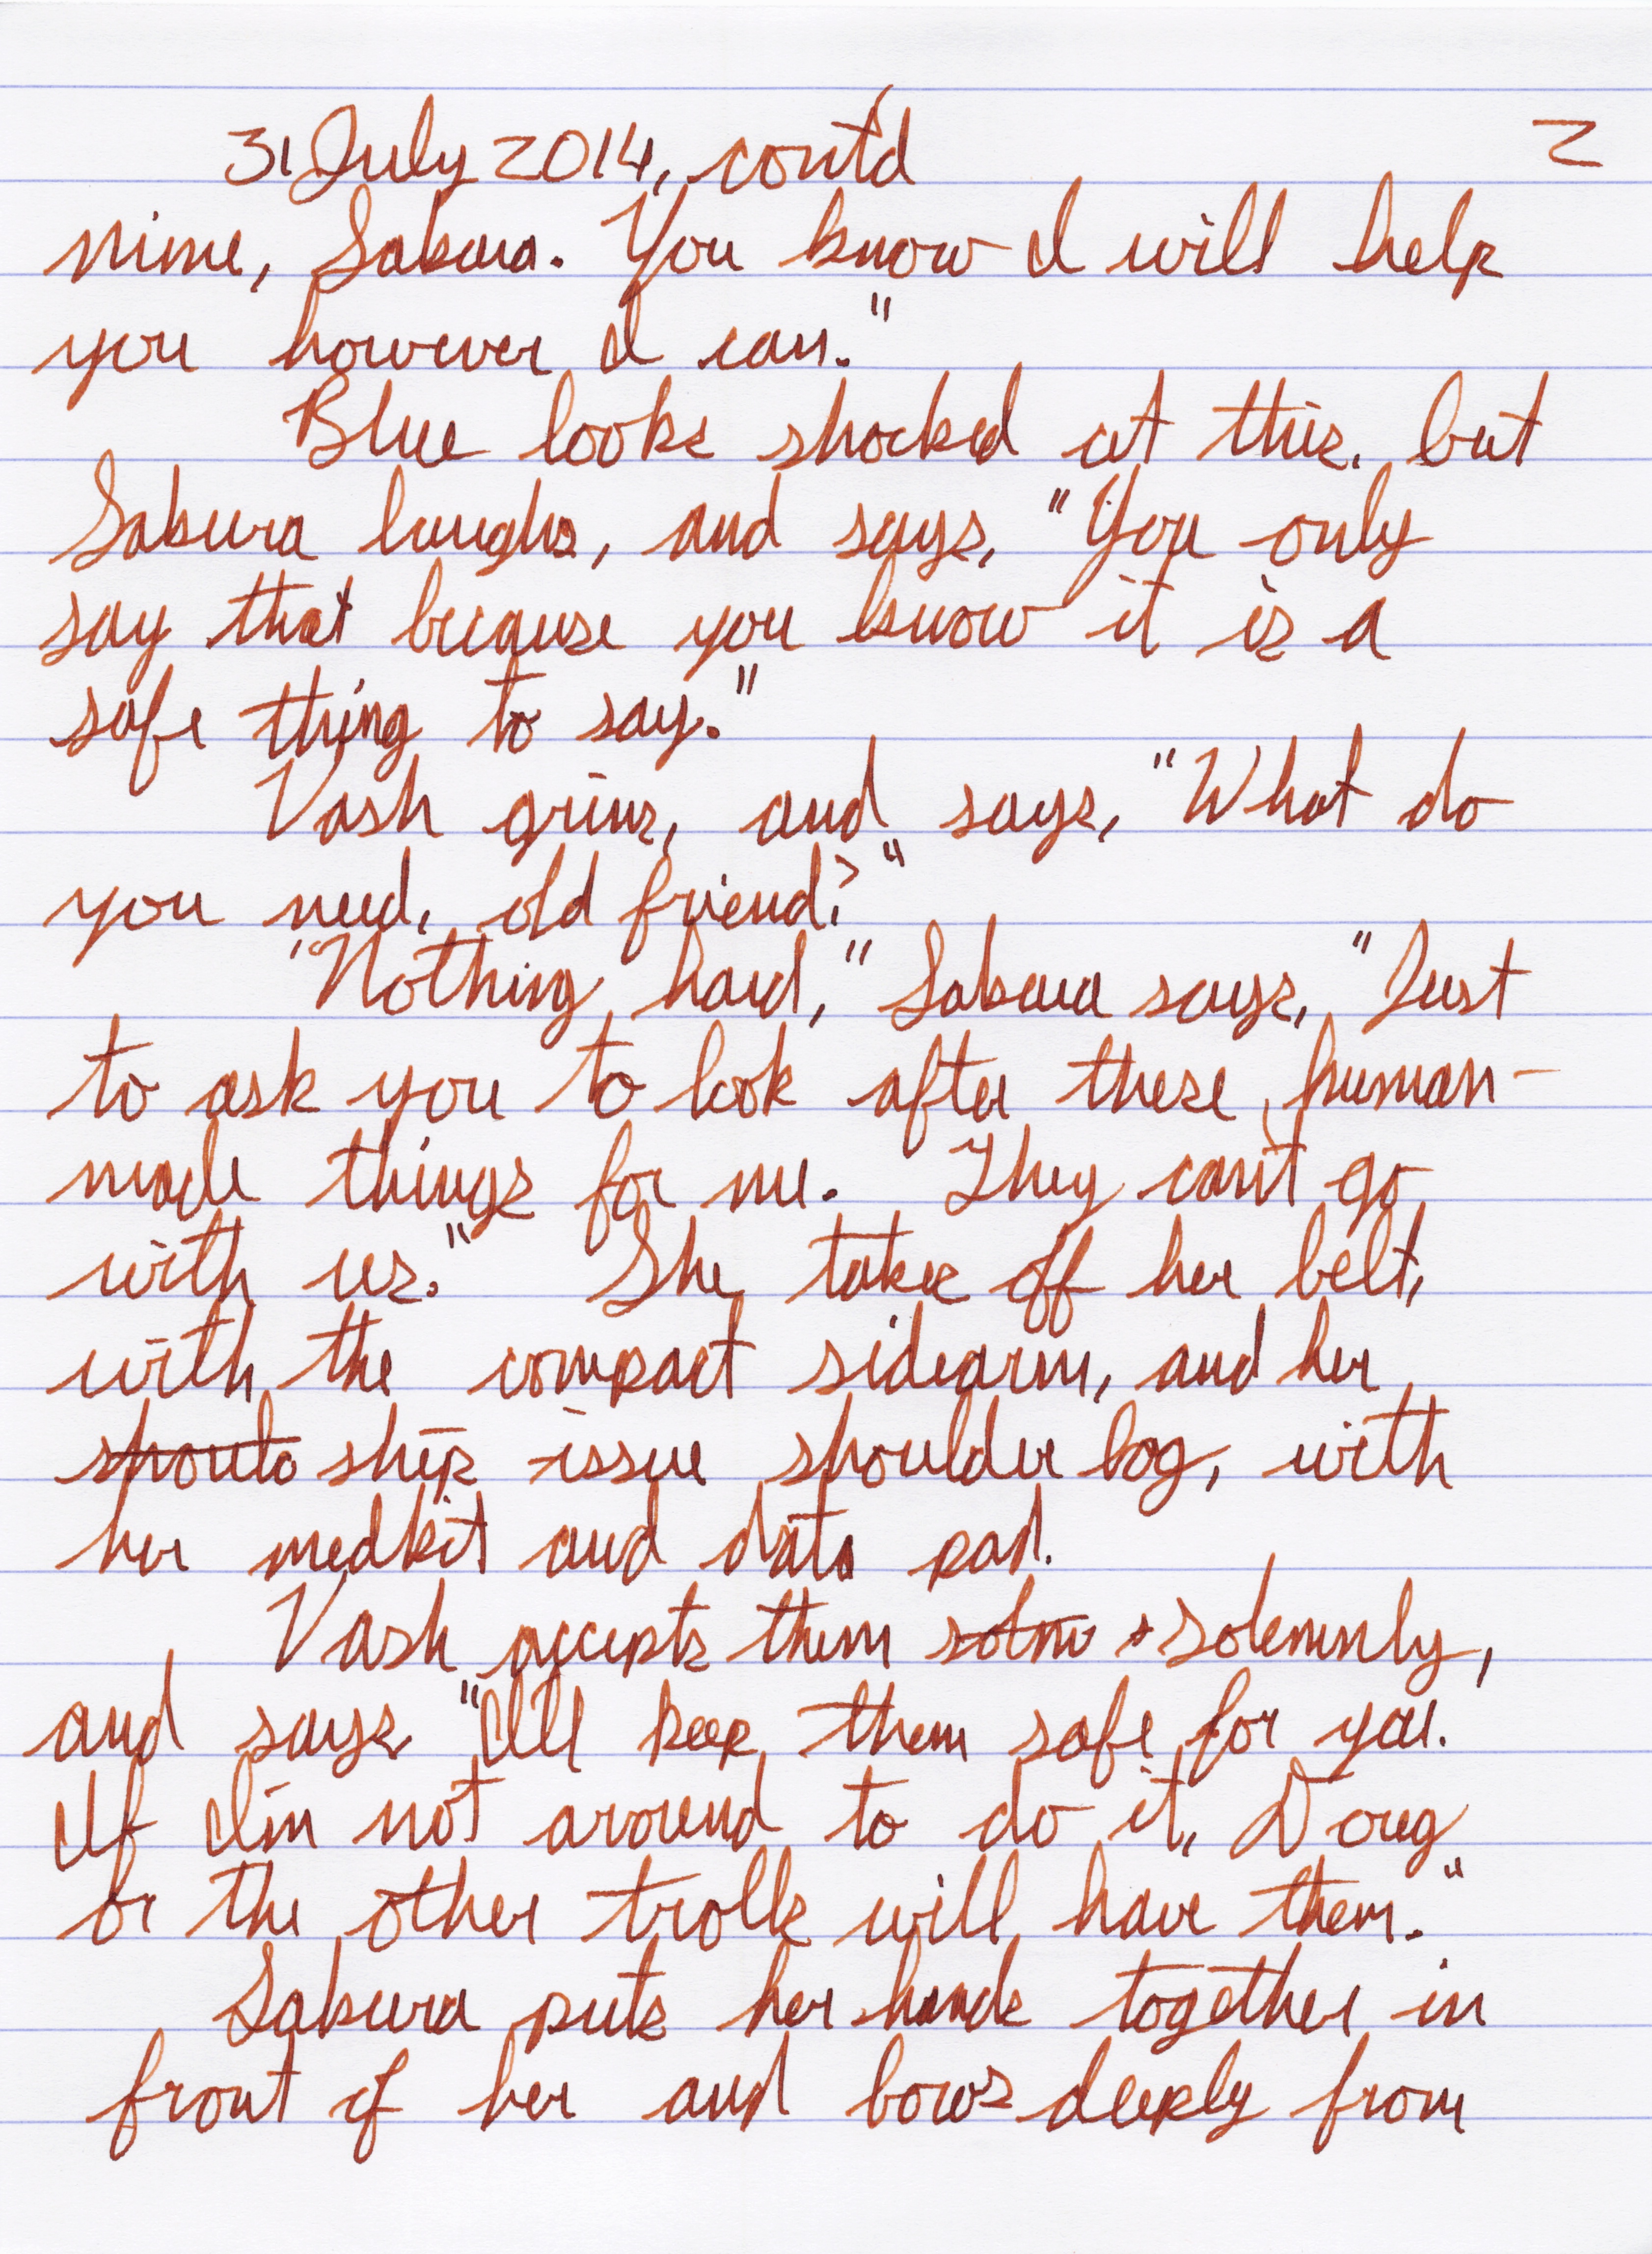 31 July 2014, cont'd 2
mine, Sakura. You know I will help
you however I can."
Blue looks shocked at this, but
Sakura laughs, and says, "You only
say that because you know it is a
safe thing to say."
Vash grins, and says, "What do
you need, old friend?"
"Nothing hard," Sakura says, "Just
to ask you to look after these human-
made things for me. They can't go
with us." She takes off her belt,
with the compact sidearm, and her
shoulo ship issue shoulder bag, with
her medkit and data pad.
Vash accepts them solm s solemnly,
and says "I'll keep them safe for you.
If I'm not around to do it, Doug
or the other trolls will have them."
Sakura puts her hands together in
front of her and bows deeply from